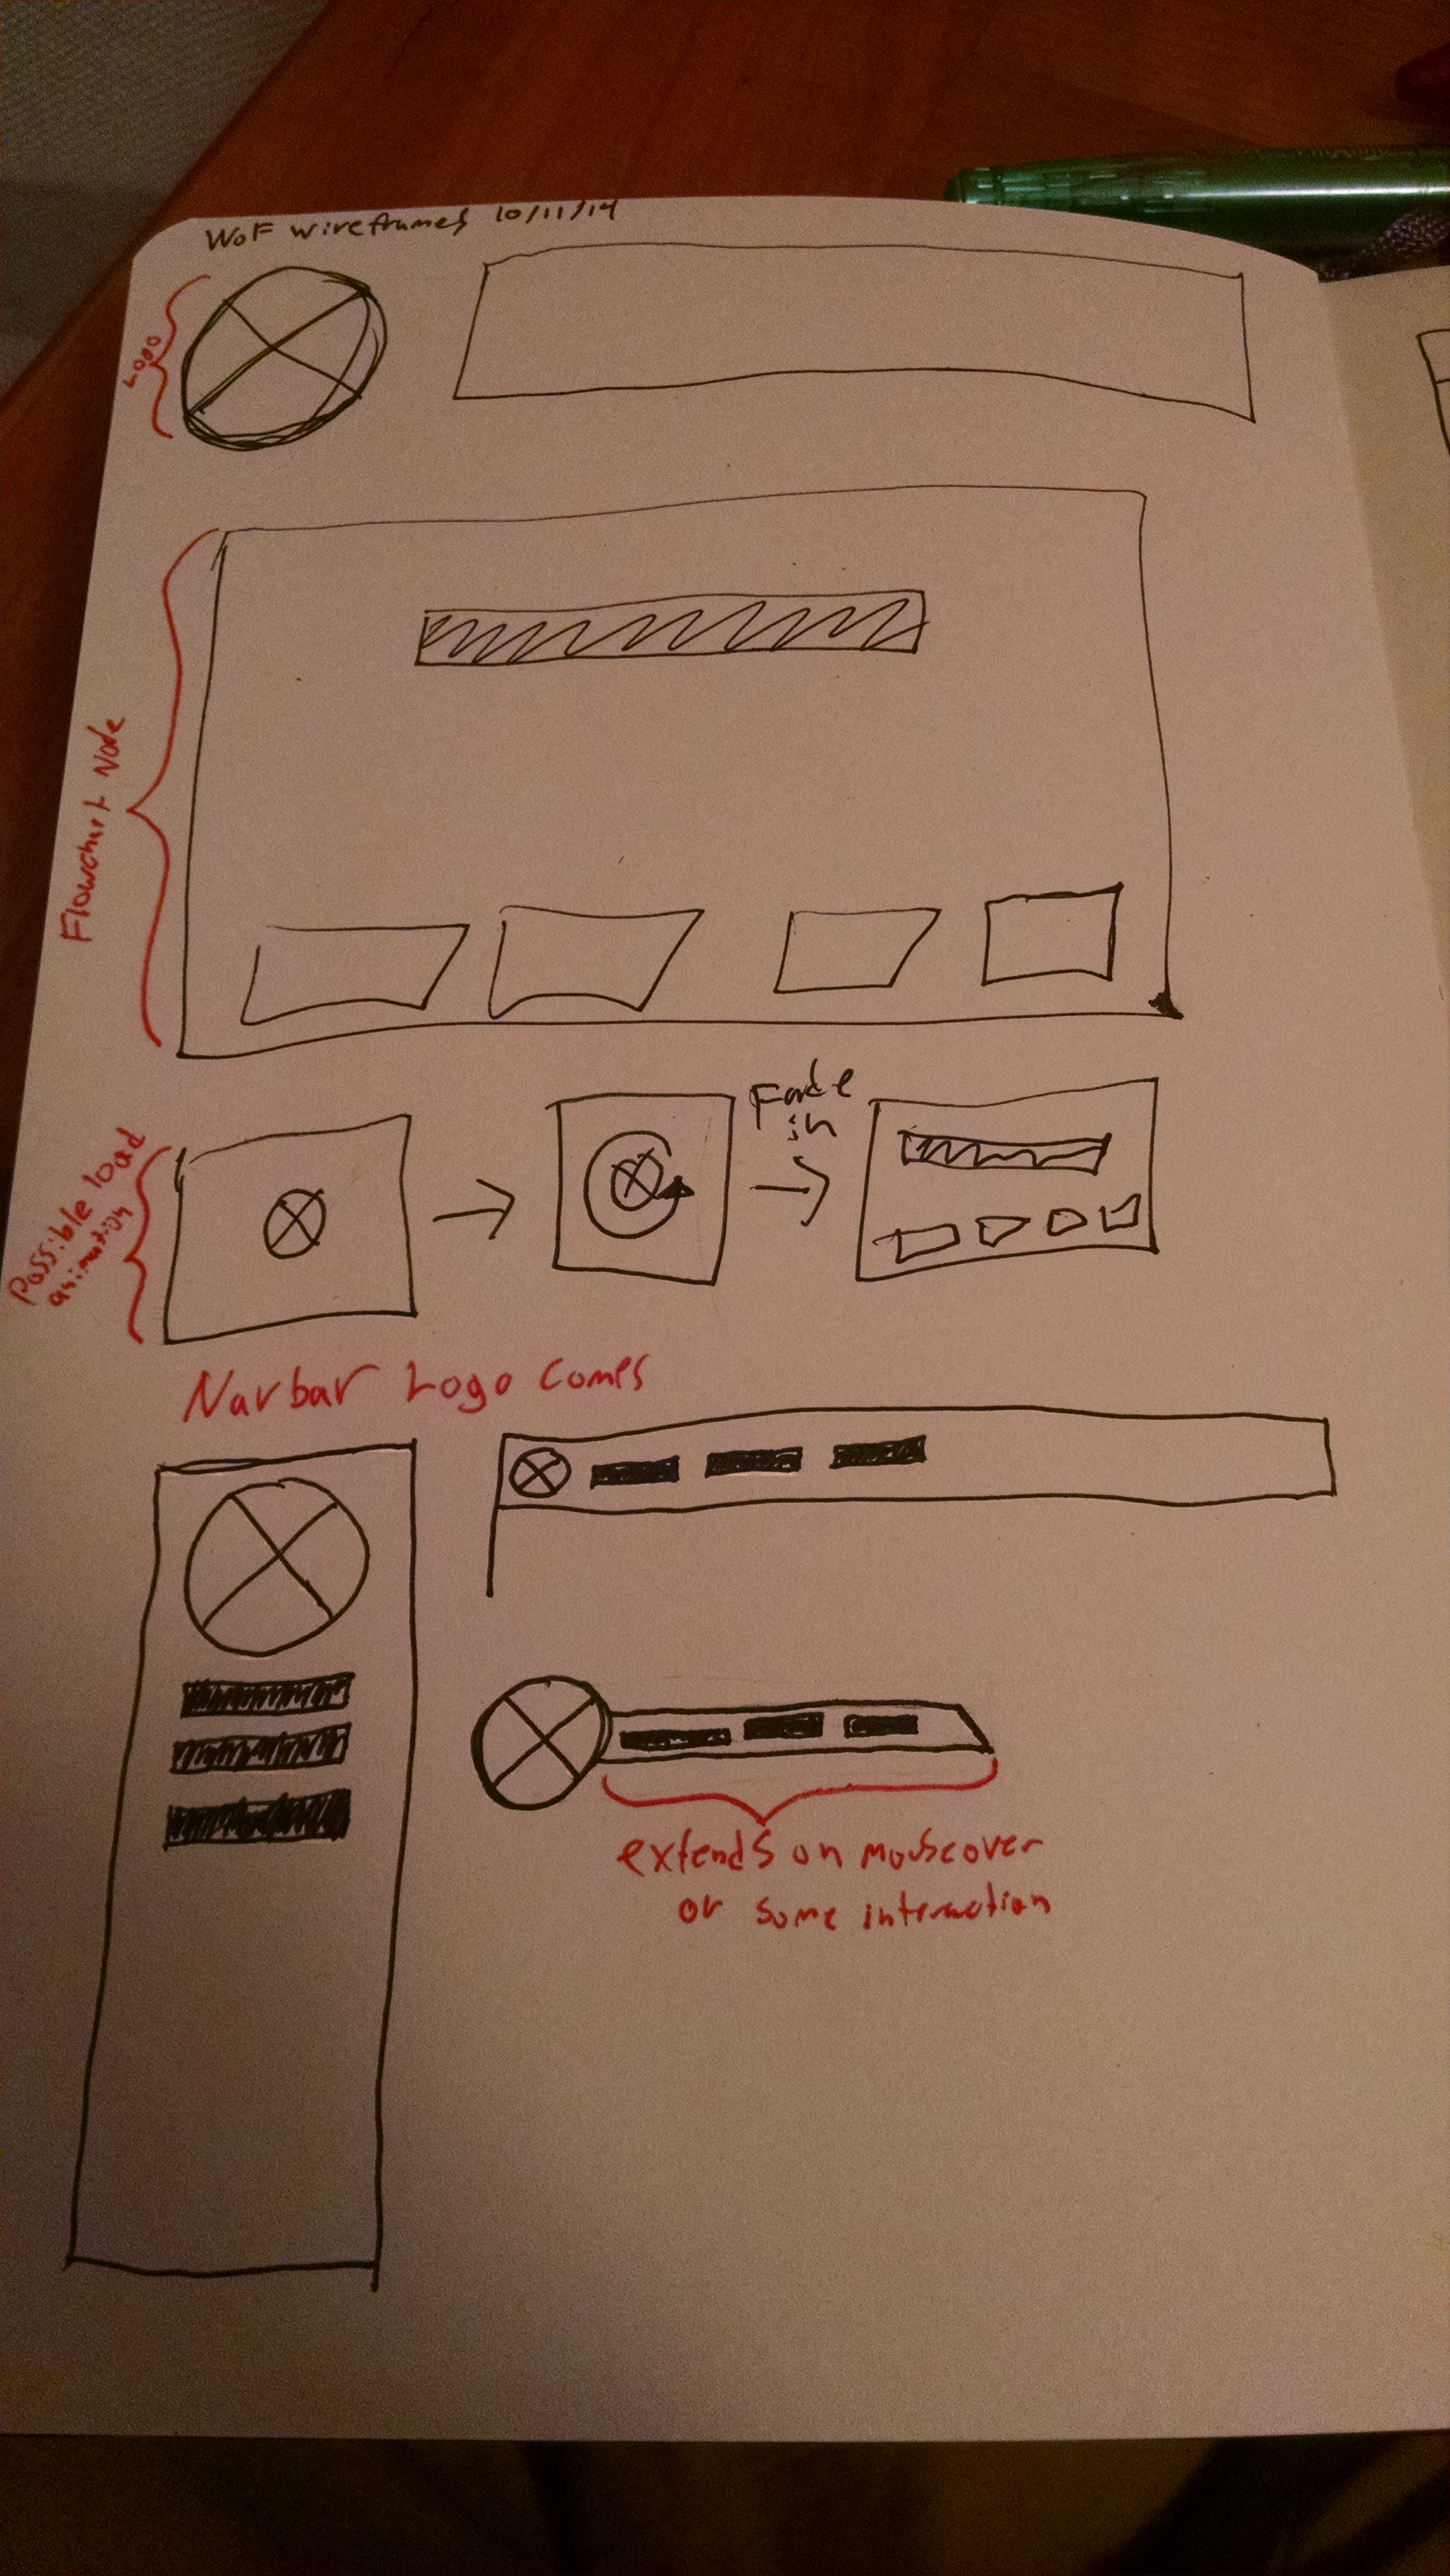 WoF wireframes 10/11/14
Logo
Flowchart Node
Fade
in
Possible load
animation
Navbar Logo Comps
extends on mouseover
or some interaction